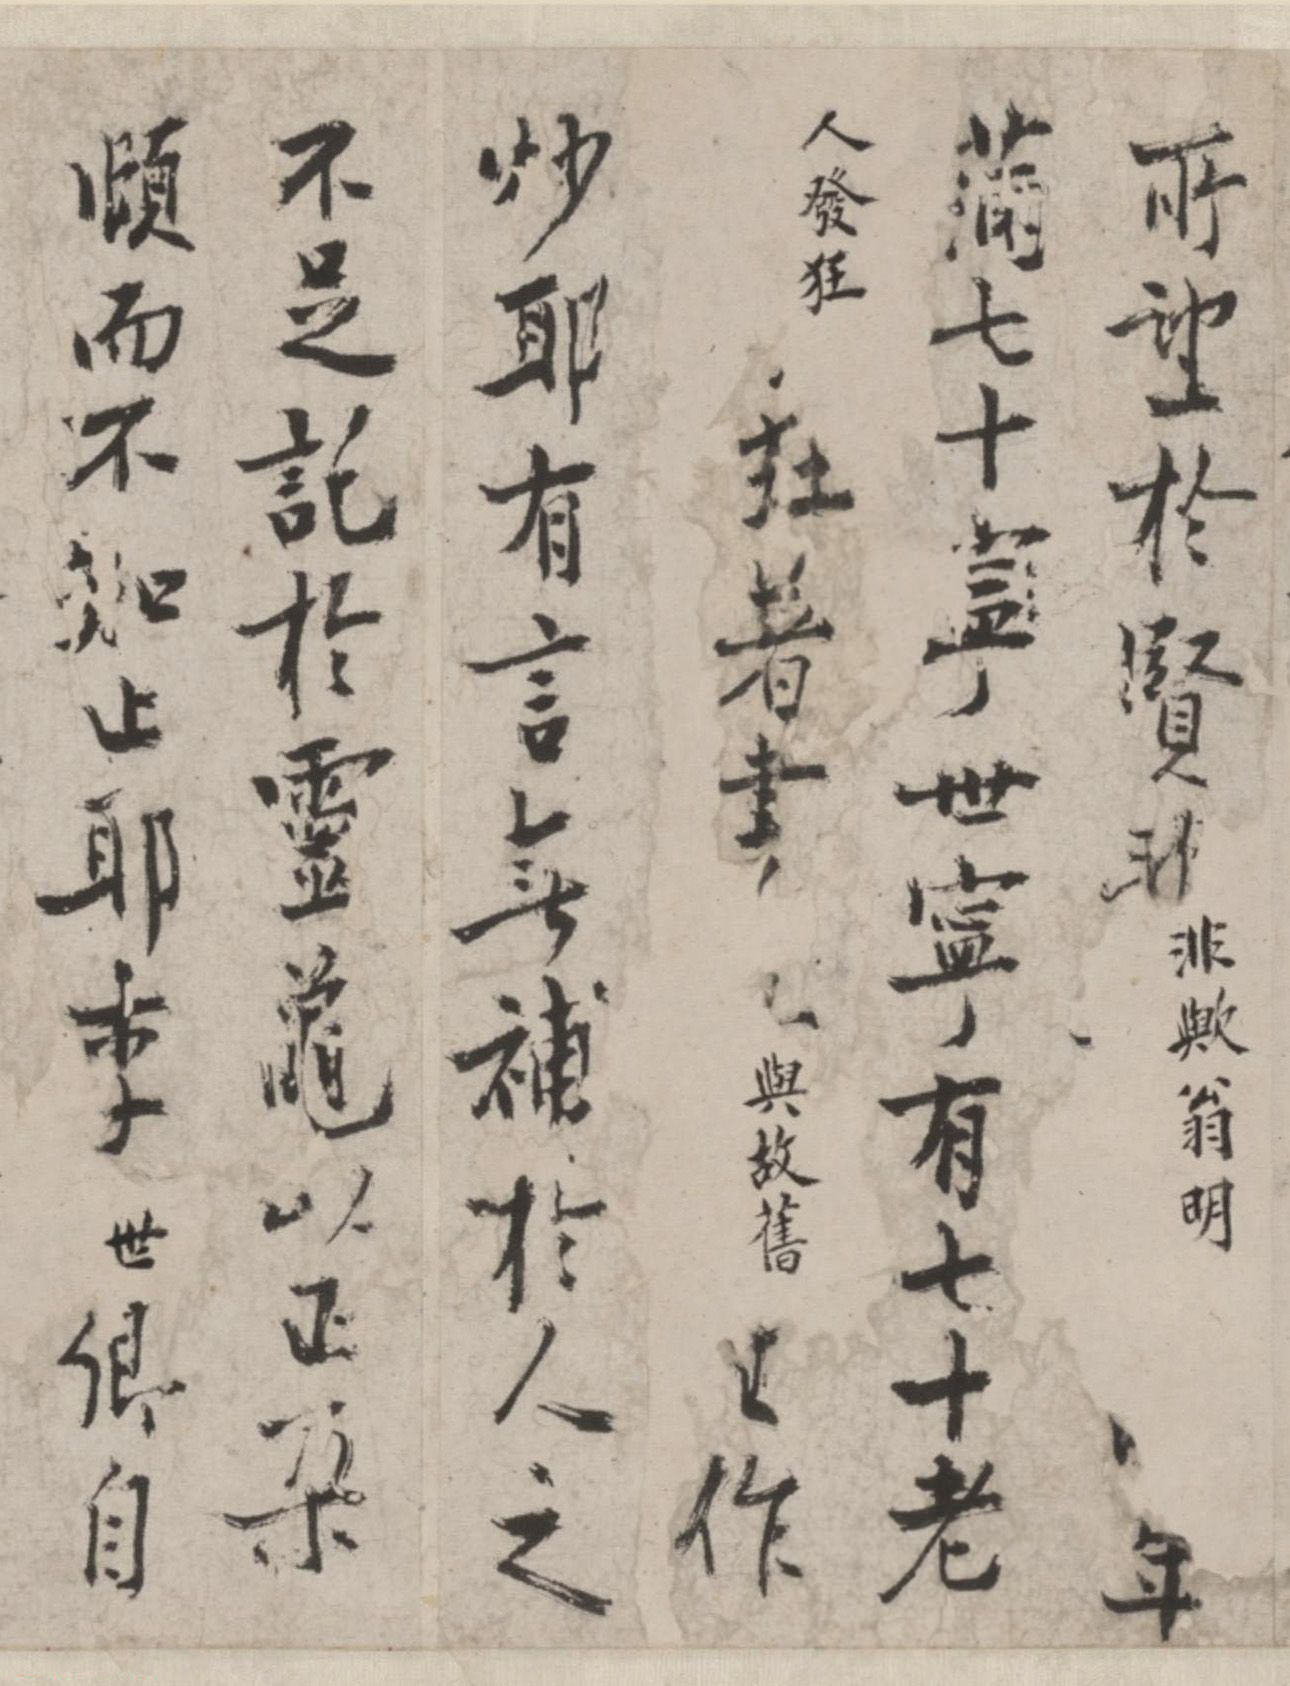 所望於賢非歟翁明年
滿七十寧世寧有七十老
人發狂著書與故舊作
炒耶有言無補於人之
不足託於靈龜以正朶
頤而不知止耶李世卿自